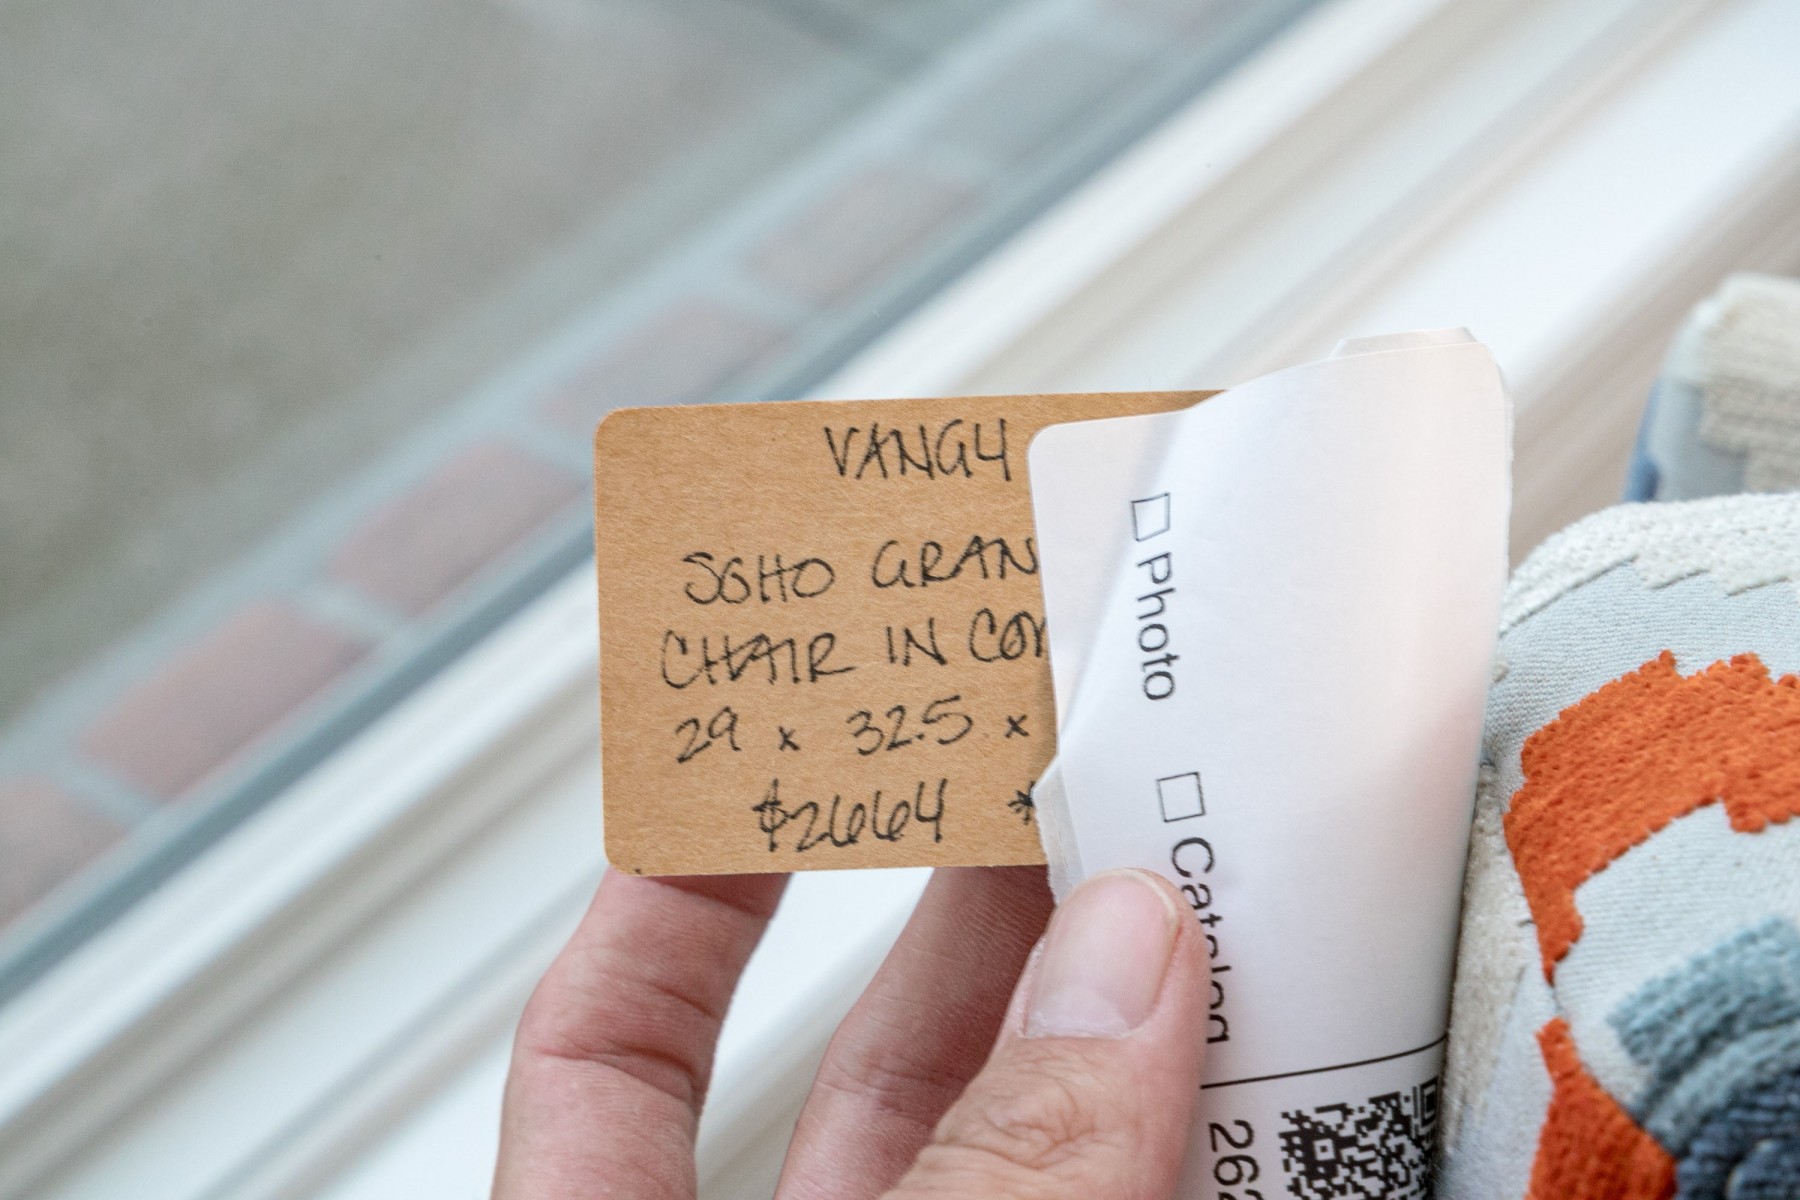 VANGY
SOHO GRAN
CHAIR IN CO
29 x 32.5 x
$2664 *
☐ Photo
☐ Catalog
262